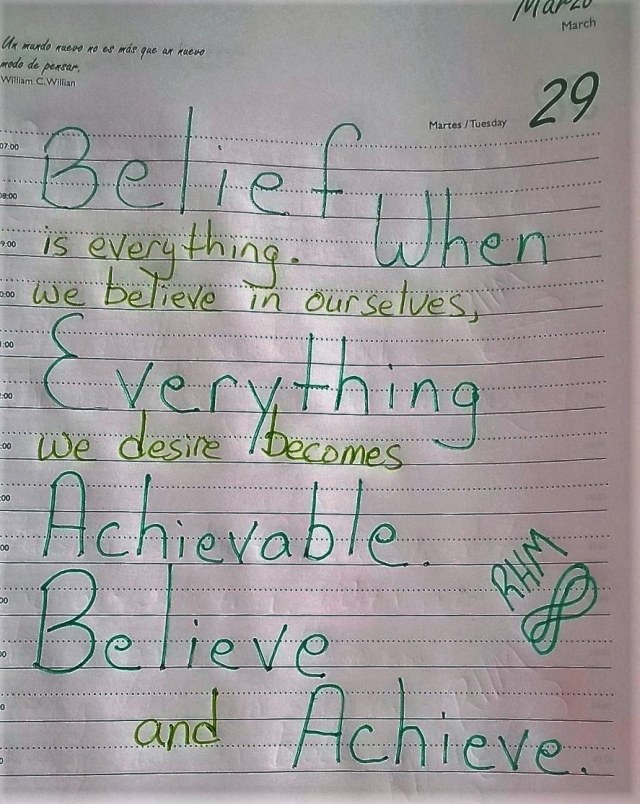 Marzo
March
Un mundo nuevo no es más que un nuevo
modo de pensar.
William C. Willian
Martes / Tuesday
29
07:00
Belief
08:00
When
9:00
is everything.
0:00
we believe in ourselves,
1:00
Everything
2:00
:00
we desire becomes
:00
Achievable.
00
RHM
00
Believe
00
0
and Achieve.
0